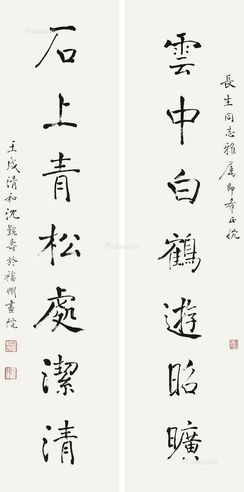 長生同志雅属即希正腕
雲中白鶴遊昭曠
石上青松處潔清
壬戌清和沈覲壽於福州畫院